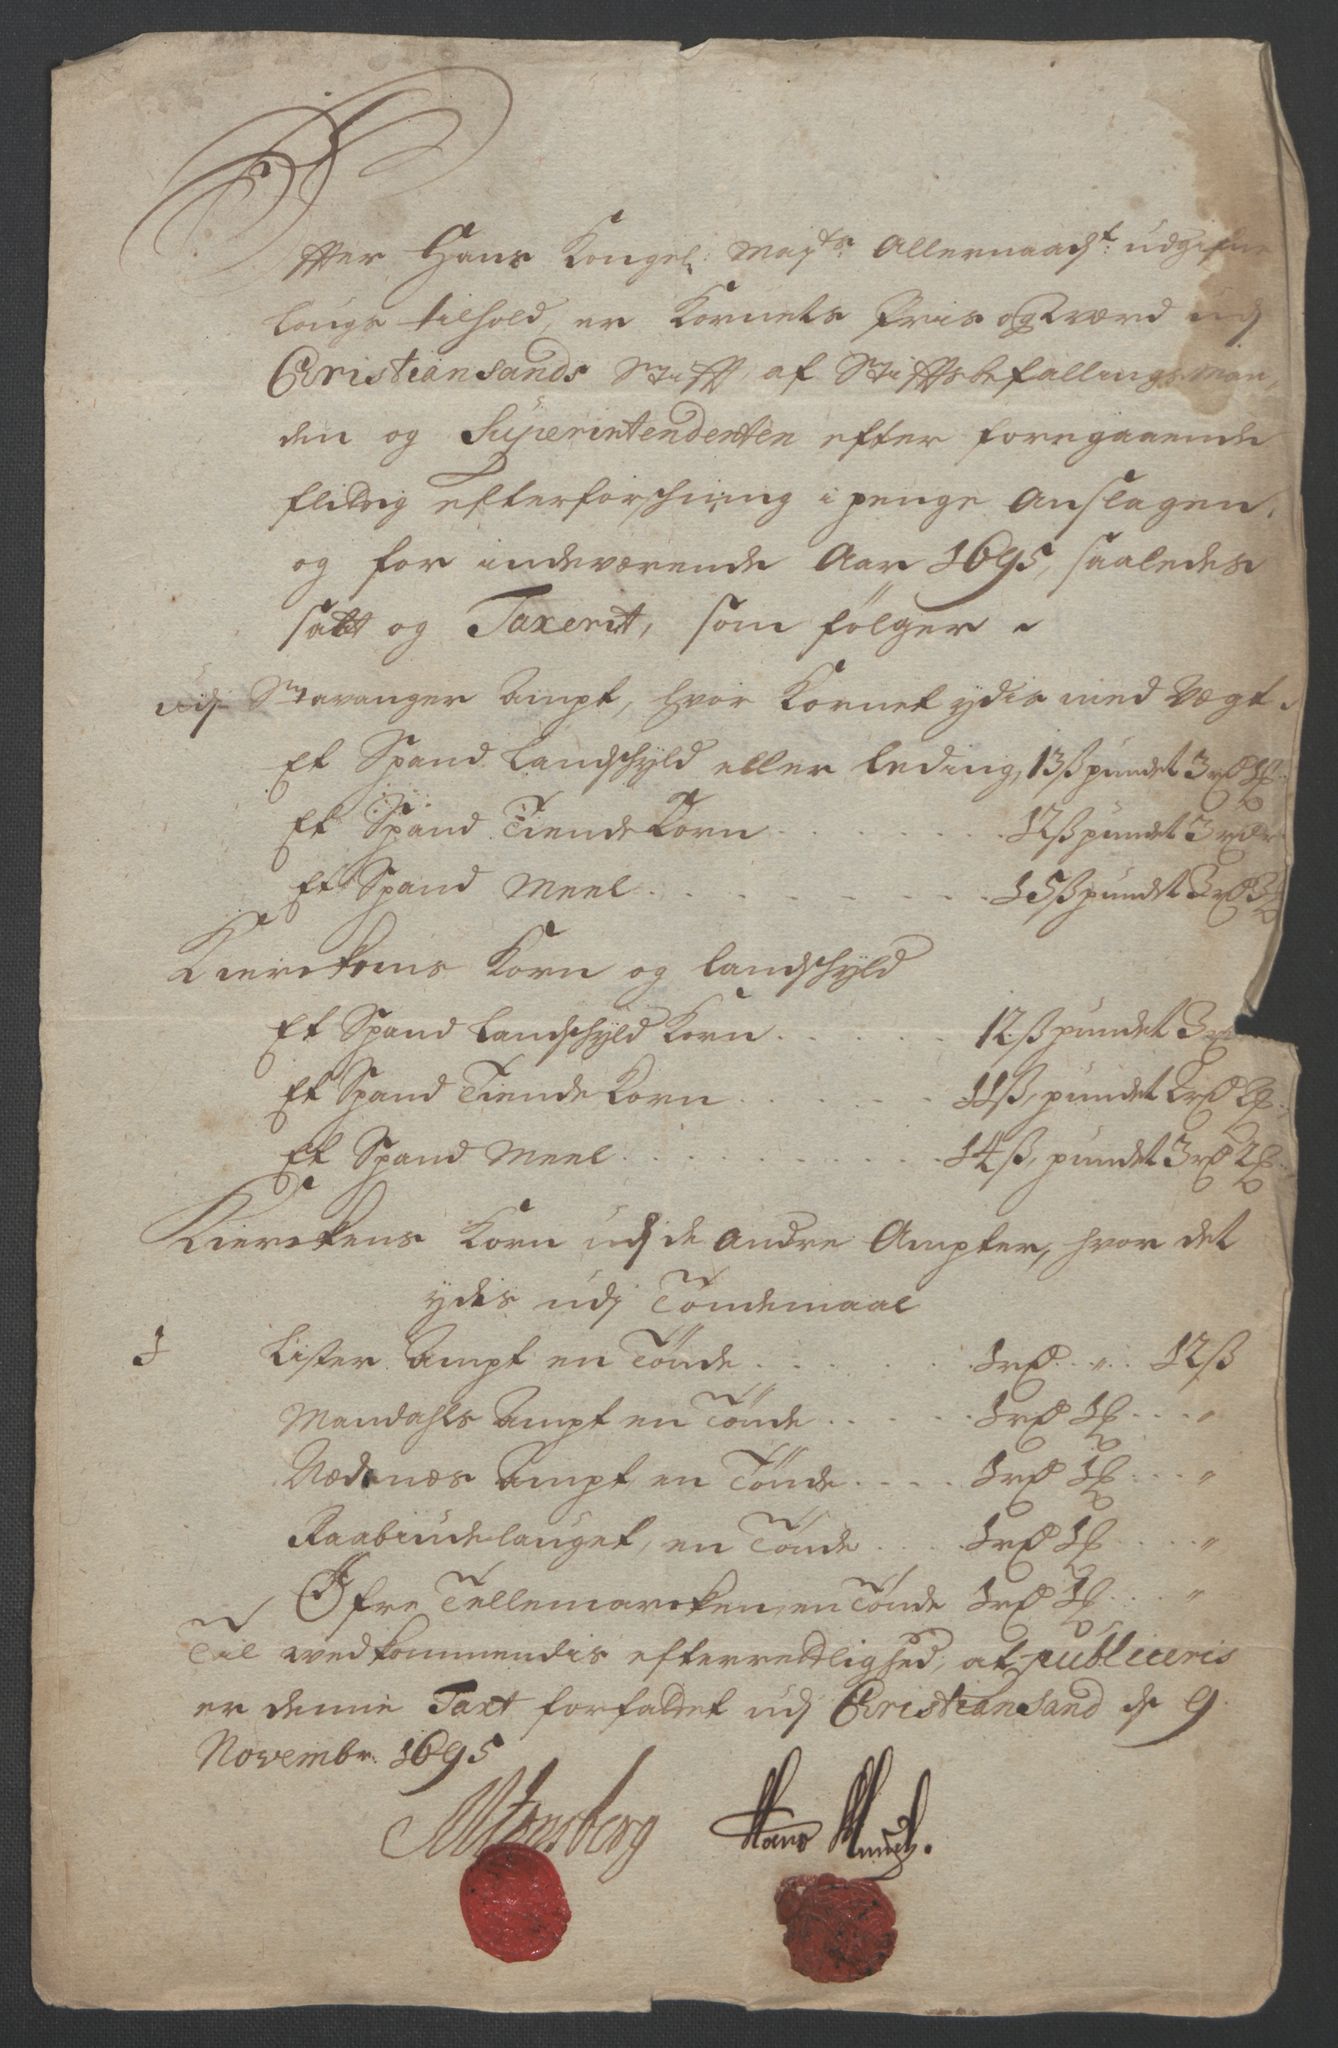 Efter Hans Kongel: Maÿtz: Allernaadt: udgifne
Lougs tilhold, er Kornets Priis og Værd udj
Christiansands Stifft, af Stifftsbefallingsman,
den og Superintendenten efter foregaaende
flittig efterforschning i penge Anslagen,
og for indeværende Aar 1695, saaledes
satt og Taxerit, som følger
udj Stavanger Ampt, hvor Kornet ydis med Vægt
Et Spand Landschyld eller Leding, 13 ß pundet 3 rd 1 ß
Et Spand Tiende Korn 12 ß pundet 3 rdr
Et Spand Meel 15 ß pundet 3 rd 3
Kierckens Korn og Landschyld
Et Spand Landschyld Korn 12 ß pundet 3 rd
Et Spand Tiende Korn 11 ß, pundet 2 rd 2
Et Spand Meel 14 ß, pundet 3 rd 2
Kierckens Korn udj de Andre Ampter, hvor det
ydis udj Tøndemaal
I Lister Ampt en Tønde 1 rd " 12 ß
Mandahls Ampt en Tønde 1 rd 1 "
Nædenæs Ampt en Tønde 1 rd 1 "
Raabiudelauget, en Tønde 1 rd 1 "
Øfre Tellemarcken, en Tønde 1 rd 1 "
Til wedkommendis efterretlighed, at publiceris
er denne Taxt forfattet udj Christiansand d 9
Novembr. 1695
MTonsberg Hans Munch.